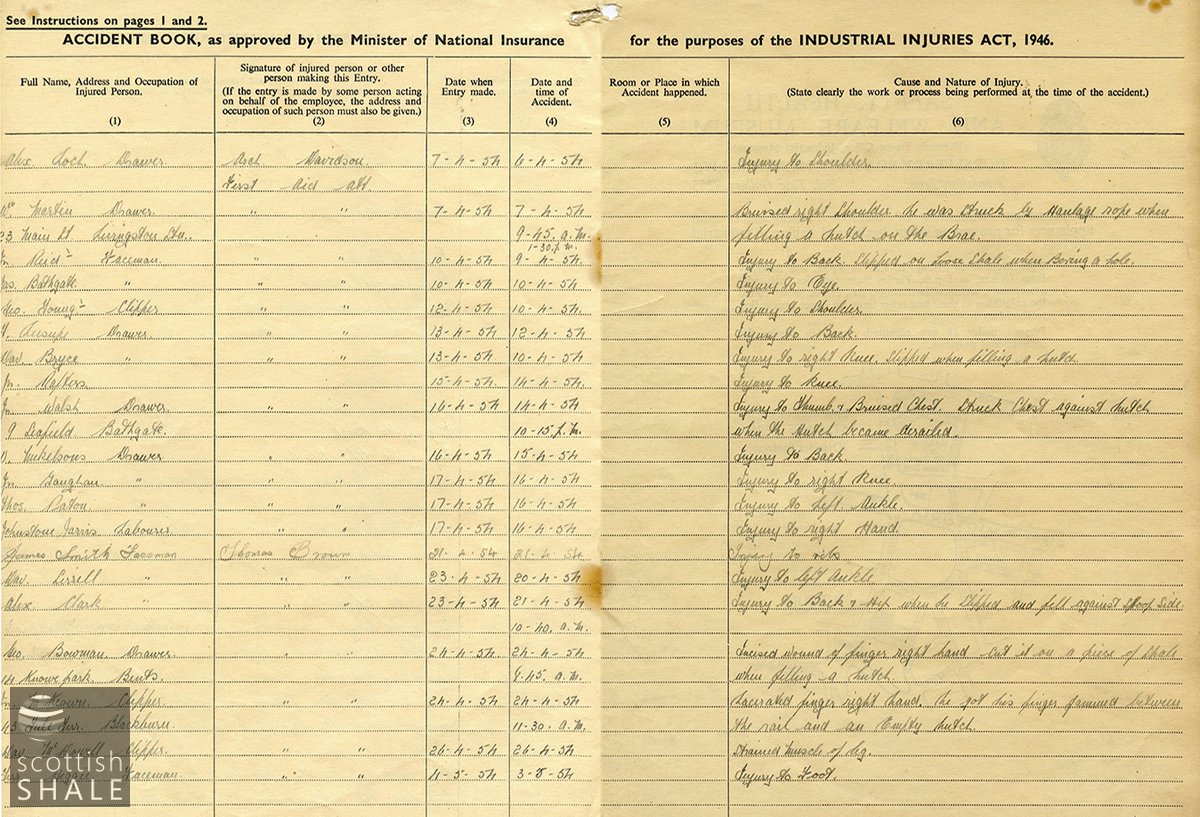 See Instructions on pages 1 and 2.
ACCIDENT BOOK, as approved by the Minister of National Insurance for the purposes of the INDUSTRIAL INJURIES ACT, 1946.
Full Name, Address and Occupation of Injured Person. (1)
Signature of injured person or other person making this Entry. (If the entry is made by some person acting on behalf of the employee, the address and occupation of such person must also be given.) (2)
Date when Entry made. (3)
Date and time of Accident. (4)
Room or Place in which Accident happened. (5)
Cause and Nature of Injury. (State clearly the work or process being performed at the time of the accident.) (6)
Alex Loch Drawer Arch Davidson. 7-4-54 6-4-54 Injury to Shoulder.
First Aid Att
Wm Martin Drawer. " " 7-4-54 7-4-54 Bruised right Shoulder he was struck by Haulage rope when
23 Main St Livingston Stn. 9-45. a.m. filling a hutch on the Brae.
1-30. p.m.
Jn Reid Faceman. " " 10-4-54 9-4-54. Injury to Back. Slipped on loose Shale when Boring a hole.
Jas. Bathgate " " " 10-4-54 10-4-54. Injury to Eye.
Geo. Young Clipper " " 12-4-54 10-4-54. Injury to Shoulder.
Drawer " " 13-4-54 12-4-54 Injury to Back.
Dav. Bryce " " " 13-4-54. 10-4-54. Injury to right Knee. Slipped when filling a hutch.
Jn. 15-4-54. 14-4-54. Injury to Knee.
Jn Walsh Drawer. " " 16-4-54. 14-4-54 Injury to Thumb & Bruised Chest. Struck Chest against hutch
9 Leafield Bathgate. 10-15 p.m. when the Hutch became derailed.
Drawer " " 16-4-54 15-4-54 Injury to Back
Jn. Vaughan " " " 17-4-54 16-4-54 Injury to right Knee.
Thos. Paton " " " 17-4-54 16-4-54 Injury to left Ankle.
Johnstone Jarvis Labourer " " 17-4-54 16-4-54 Injury to right Hand
James Smith Faceman Thomas Brown 21-4-54 21-4-54 Injury to ribs
Dav. " " " 23-4-54 20-4-54 Injury to left Ankle
Alex Clark " " " 23-4-54 21-4-54 Injury to Back & Hip when he Slipped and fell against Stoop Side.
10-40. a.m.
Geo. Bowman. Drawer. " " 24-4-54. 24-4-54. Incised wound of finger right hand. Cut it on a piece of Shale
14 Knowe park Bents. 9.45. a.m. when filling a hutch.
Jn McKeown. Clipper. " " 24-4-54. 24-4-54 Lacerated finger right hand. he got his finger jammed between
Terr. Blackburn. 11-30. a.m. the rail and an Empty hutch.
Dav Clipper. " " 26-4-54 26-4-54. Strained muscle of leg.
Faceman. " " 4-5-54 3-5-54 Injury to Foot.
Scottish
SHALE